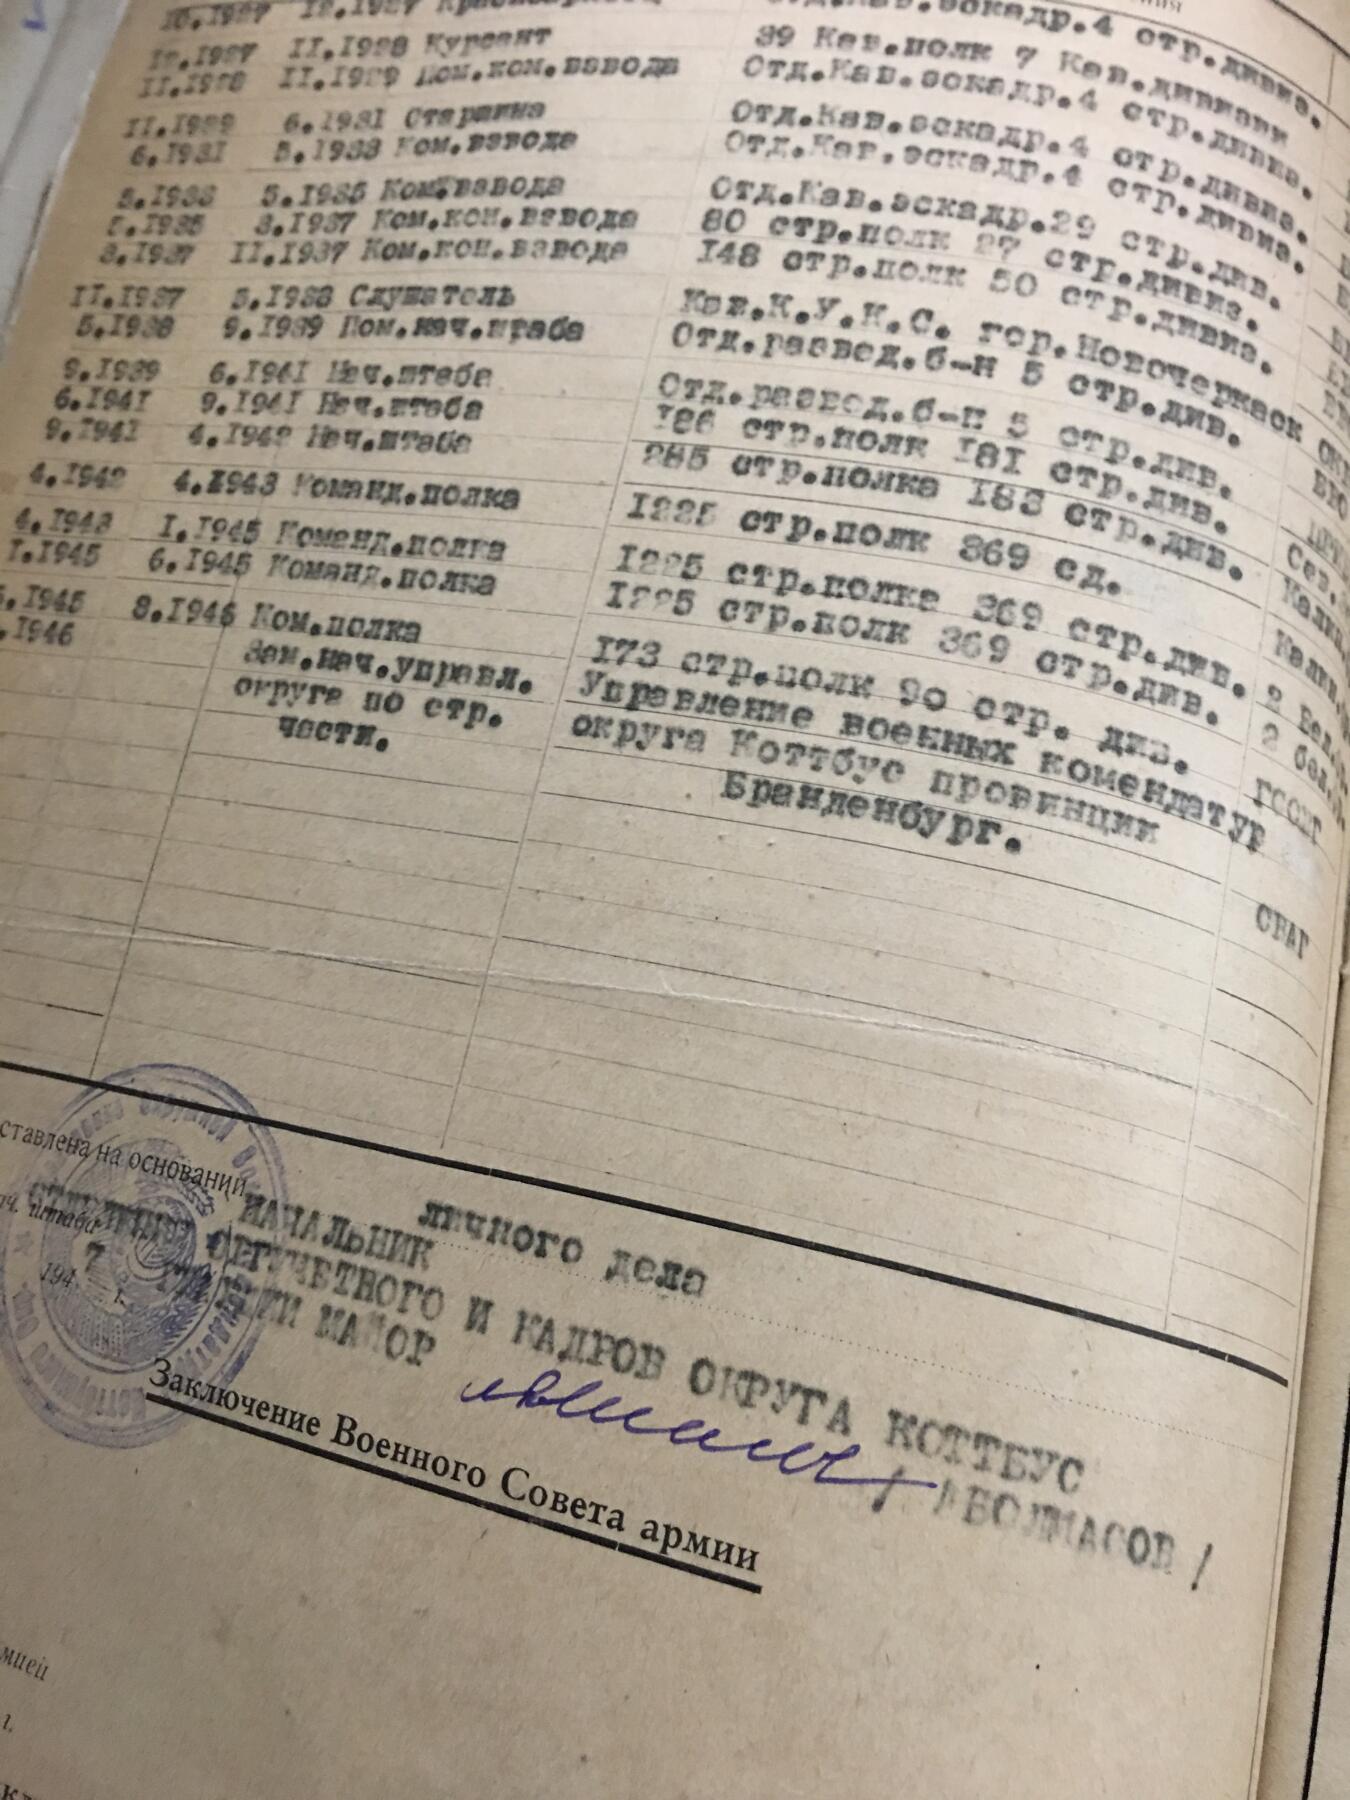 10.1927 12.1927 Красноармеец Отд.Кав.эскадр.4 стр.дивиз.
12.1927 11.1928 Курсант 39 Кав.полк 7 Кав.дивизии
11.1928 11.1929 Пом.ком.взвода Отд.Кав.эскадр.4 стр.дивиз.
11.1929 6.1931 Старшина Отд.Кав.эскадр.4 стр.дивиз.
6.1931 5.1933 Ком.взвода Отд.Кав.эскадр.4 стр.дивиз.
5.1933 5.1935 Ком.взвода Отд.Кав.эскадр.29 стр.див.
5.1935 3.1937 Ком.кон.взвода 80 стр.полк 27 стр.дивиз.
3.1937 11.1937 Ком.кон.взвода 148 стр.полк 50 стр.дивиз.
11.1937 5.1938 Слушатель Кав.К.У.К.С. гор.Новочеркасск
5.1938 9.1939 Пом.нач.штаба Отд.развед.б-н 5 стр.див.
9.1939 6.1941 Нач.штаба Отд.развед.б-н 5 стр.див.
6.1941 9.1941 Нач.штаба 186 стр.полк 181 стр.див.
9.1941 4.1942 Нач.штаба 285 стр.полка 183 стр.див.
4.1942 4.1943 Команд.полка 1225 стр.полк 369 сд.
4.1943 1.1945 Команд.полка 1225 стр.полка 369 стр.див. 2 Бел.
1.1945 6.1945 Команд.полка 1225 стр.полк 369 стр.див. 2 бел.
.1945 8.1946 Ком.полка 173 стр.полк 90 стр. див. ГСОВГ
.1946 Зам.нач.управл. Управление военных комендатур
округа по стр. округа Коттбус провинции
части. Бранденбург. СВАГ
ставлена на основании личного дела
НАЧАЛЬНИК
ОРГУЧЕТНОГО И КАДРОВ ОКРУГА КОТТБУС
нач. штаба
194 7 г. МАЙОР / АБОЛМАСОВ /
Заключение Военного Совета армии
мией
г.